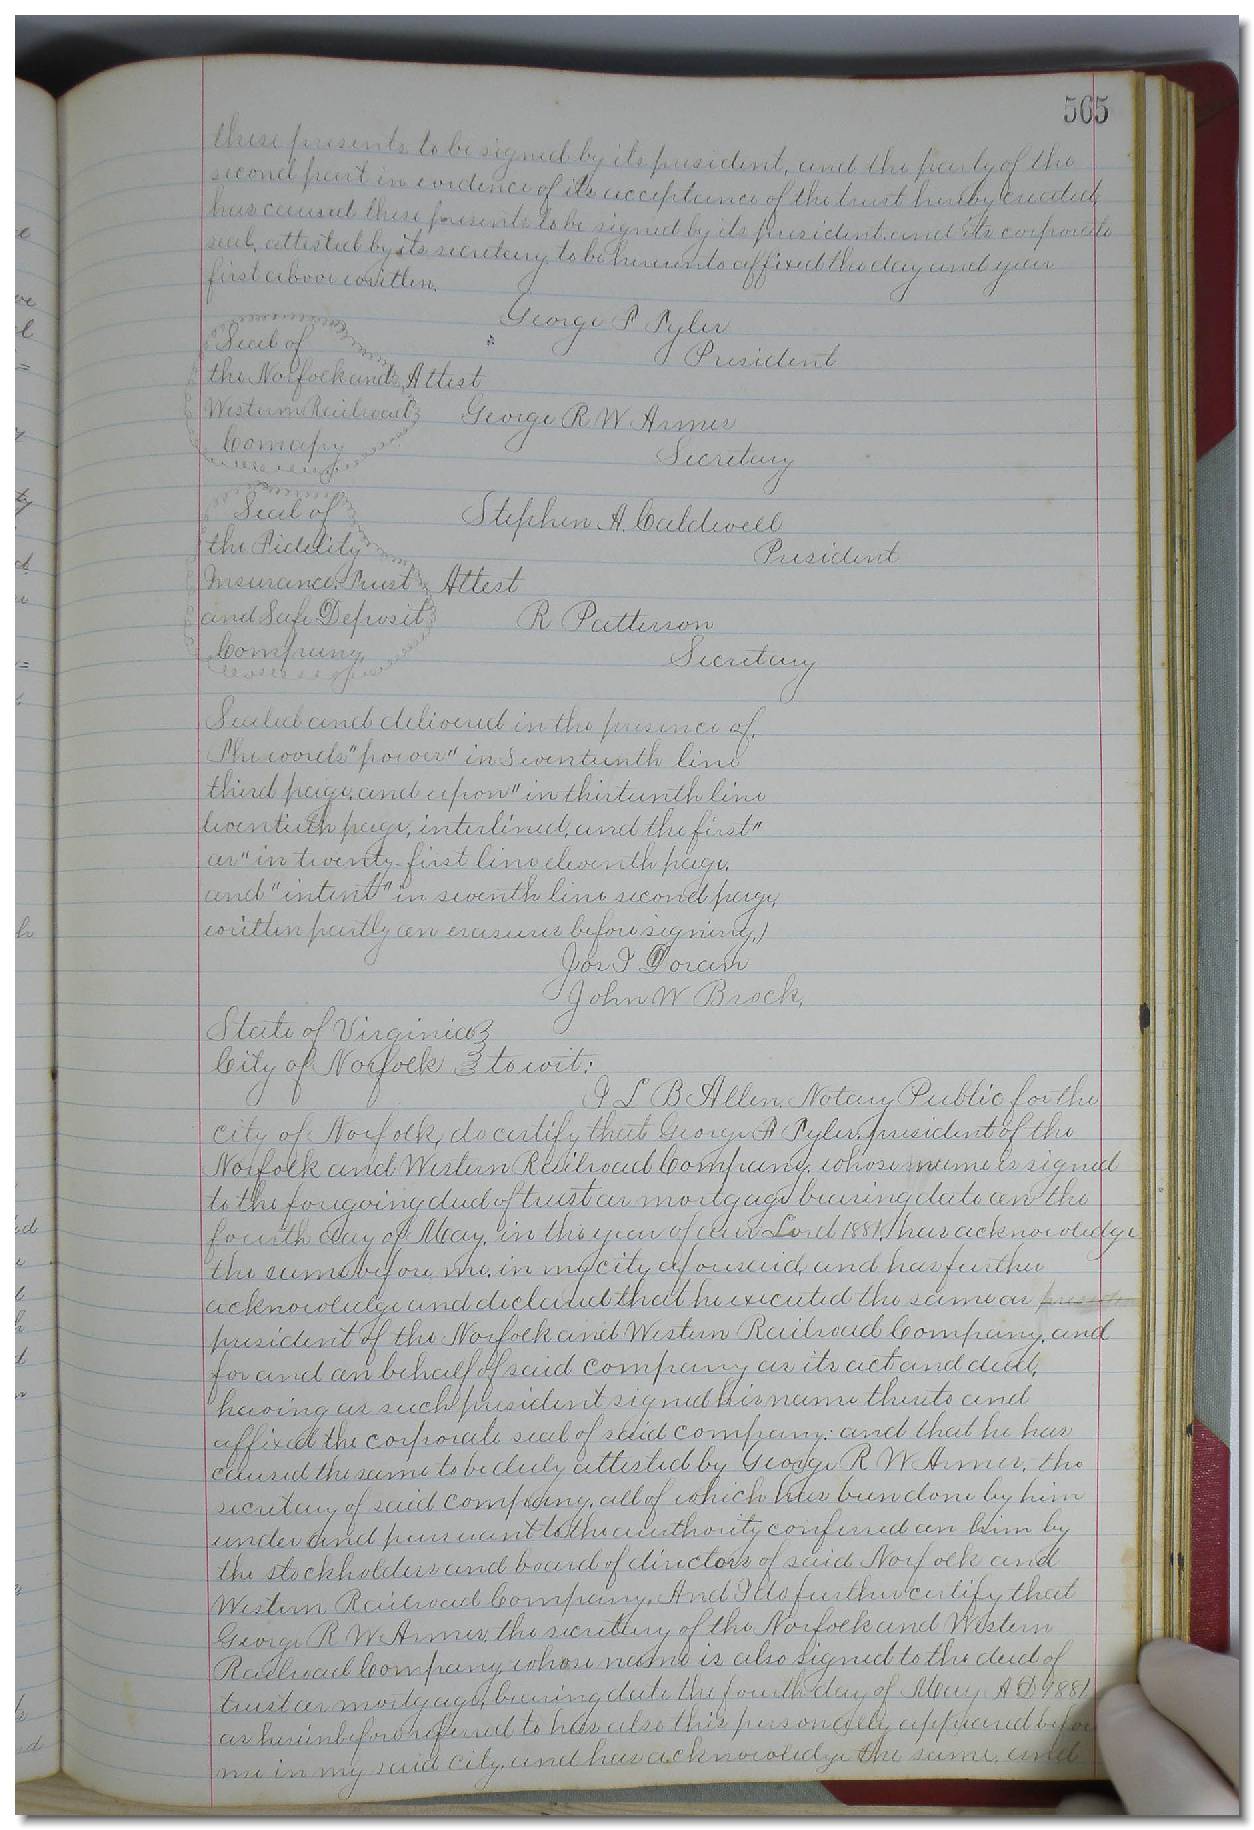 565
these presents to be signed by its president, and the party of the
second part in evidence of its acceptance of the trust hereby created
has caused these presents to be signed by its president and its corporate
seal, attested by its secretary, to be hereunto affixed the day and year
first above written.
George F Tyler
President
Seal of
the Norfolk and
Western Railroad
Company
Attest
George R W Armes
Secretary
Seal of
the Fidelity
Insurance, Trust
and Safe Deposit
Company
Stephen A. Caldwell
President
Attest
R Patterson
Secretary
Sealed and delivered in the presence of.
The words "power" in seventeenth line
third page, and upon" in thirteenth line
twentieth page, interlined, and the first"
or" in twenty-first line eleventh page,
and "intent" in seventh line second page,
written partly on erasures before signing,)
Jos I Doran
John W Brock,
State of Virginia }
City of Norfolk } to wit:
I L B Allen, Notary Public for the
city of Norfolk, do certify that George F Tyler, president of the
Norfolk and Western Railroad Company, whose name is signed
to the foregoing deed of trust or mortgage bearing date on the
fourth day of May, in the year of our Lord 1881, has acknowledge
the same before me, in my city aforesaid, and has further
acknowledge and declared that he executed the same as
president of the Norfolk and Western Railroad Company, and
for and on behalf of said company as its act and deed,
having as such president signed his name thereto and
affixed the corporate seal of said company: and that he has
caused the same to be duly attested by George R W Armes, the
secretary of said company, all of which has been done by him
under and pursuant to the authority conferred on him by
the stockholders and board of directors of said Norfolk and
Western Railroad Company. And I do further certify that
George R W Armes, the secretary of the Norfolk and Western
Railroad Company, whose name is also signed to the deed of
trust or mortgage, bearing date the fourth day of May A D 1881
as hereinbefore referred to has also this personally appeared before
me in my said city, and has acknowledge the same, and